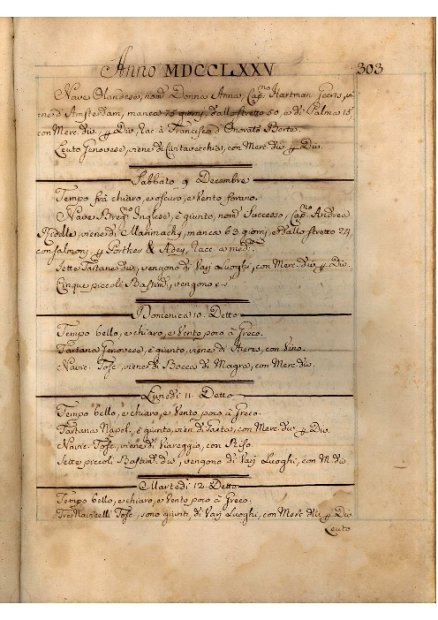 Anno MDCCLXXV 303
Nave Olandese, nom.ª Donna Anna, Cap.no Hartman Geerts,
ne d'Amsterdam, manca 75 giorni, dallo stretto 50, e di Palma 15,
con Merc. div. p Div. Rac. à Francesco d'Onorato Berte.
Leuto Genovese, viene di Civitavecchia, con Merc. div. p Div.
Sabbato 9 Decembre
Tempo frà chiaro, e oscuro, e Vento forano.
Nave Inglese, è giunto, nom. Successo, Cap.no Andrea
Riddle, viene di manca 63 giorni, e dallo stretto 24,
con Salmoni p Porther & Adey, Racc. a med.
Sette Tartane div. vengono di Varj Luoghi, con Merc. div. p Div.
Cinque piccoli Bastim. vengono
Domenica 10. Detto
Tempo bello, e chiaro, e Vento poco à Greco.
Tartana Genovese, è giunto, viene di con Vino.
Navic. Tosc. viene di Bocca di Magra, con Merc. div.
Lunedi 11 Detto
Tempo bello, e chiaro, e Vento poco à Greco.
Tartana Napol. è giunto, vien di Gaeta, con Merc. div. p Div.
Navic. Tosc. viene di Viareggio, con
Sette piccoli Bastim. div. vengono di Varj Luoghi, con M. div.
Martedi 12 Detto
Tempo bello, e chiaro, e Vento poco à Greco.
Tre Navicelli Tosc. sono giunti, di Varj Luoghi, con Merc. div. p Div.
Leuto